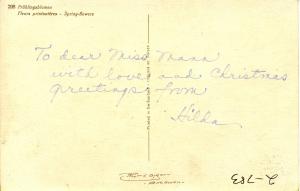 208 Frühlingsblumen
Fleurs printanières - Spring-flowers
To dear Miss Mann
with love and Christmas
greetings from
Hilda
Printed in
2-783